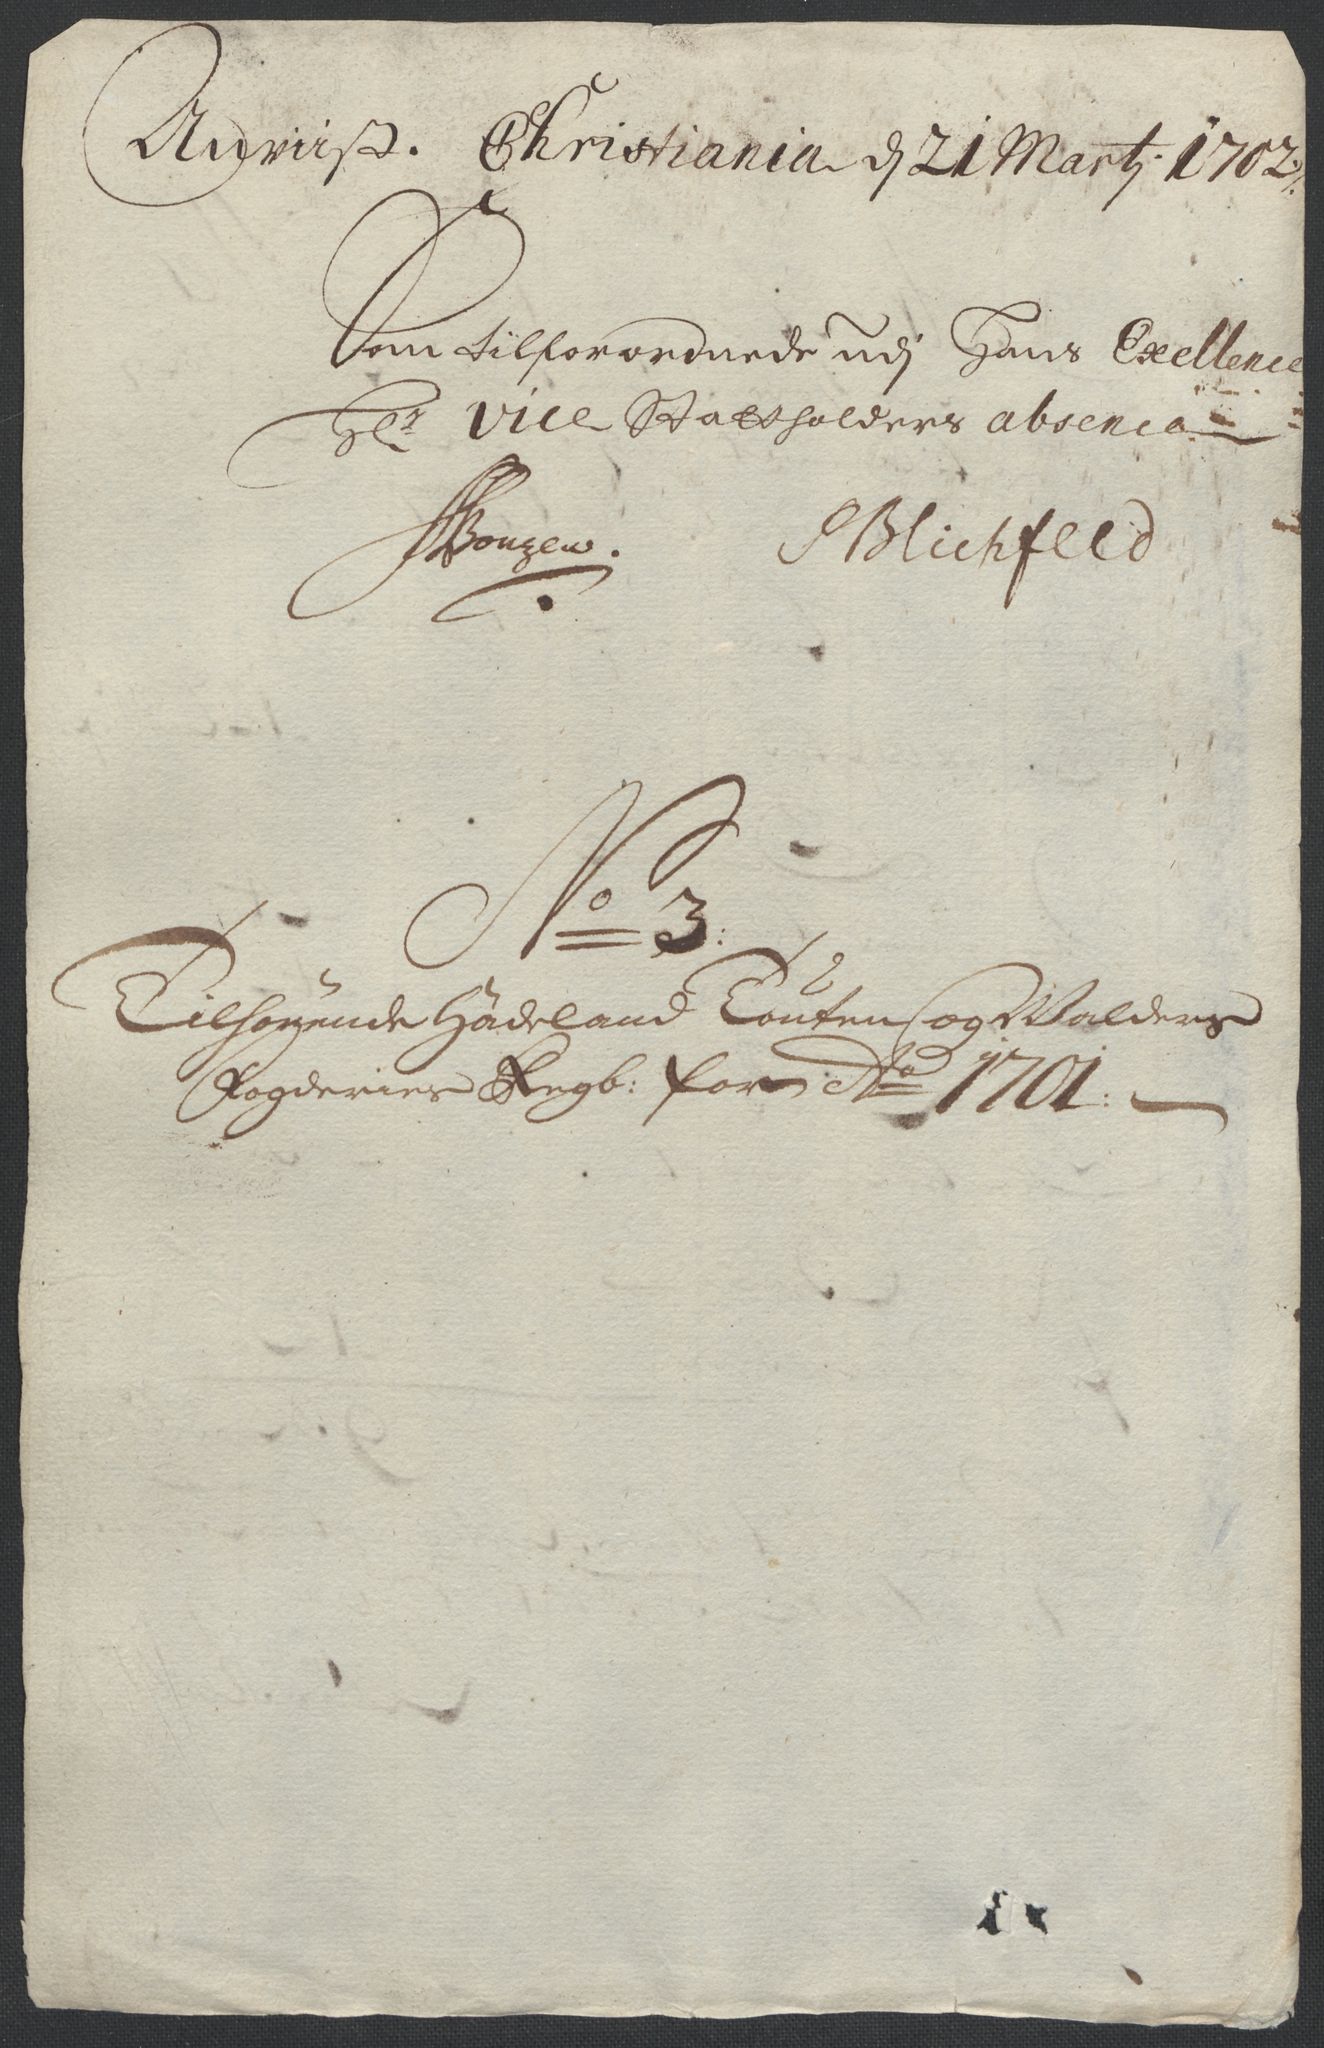 Anviist. Christiania dj 21 Martj 1702
Som tilforordnede udj Hans Exellence
Hr Vice Statholders absence
Blichfeld
No 3:
Tilhørende Hadeland Touten og Walders
Fogderies Regb: for Ao 1701: